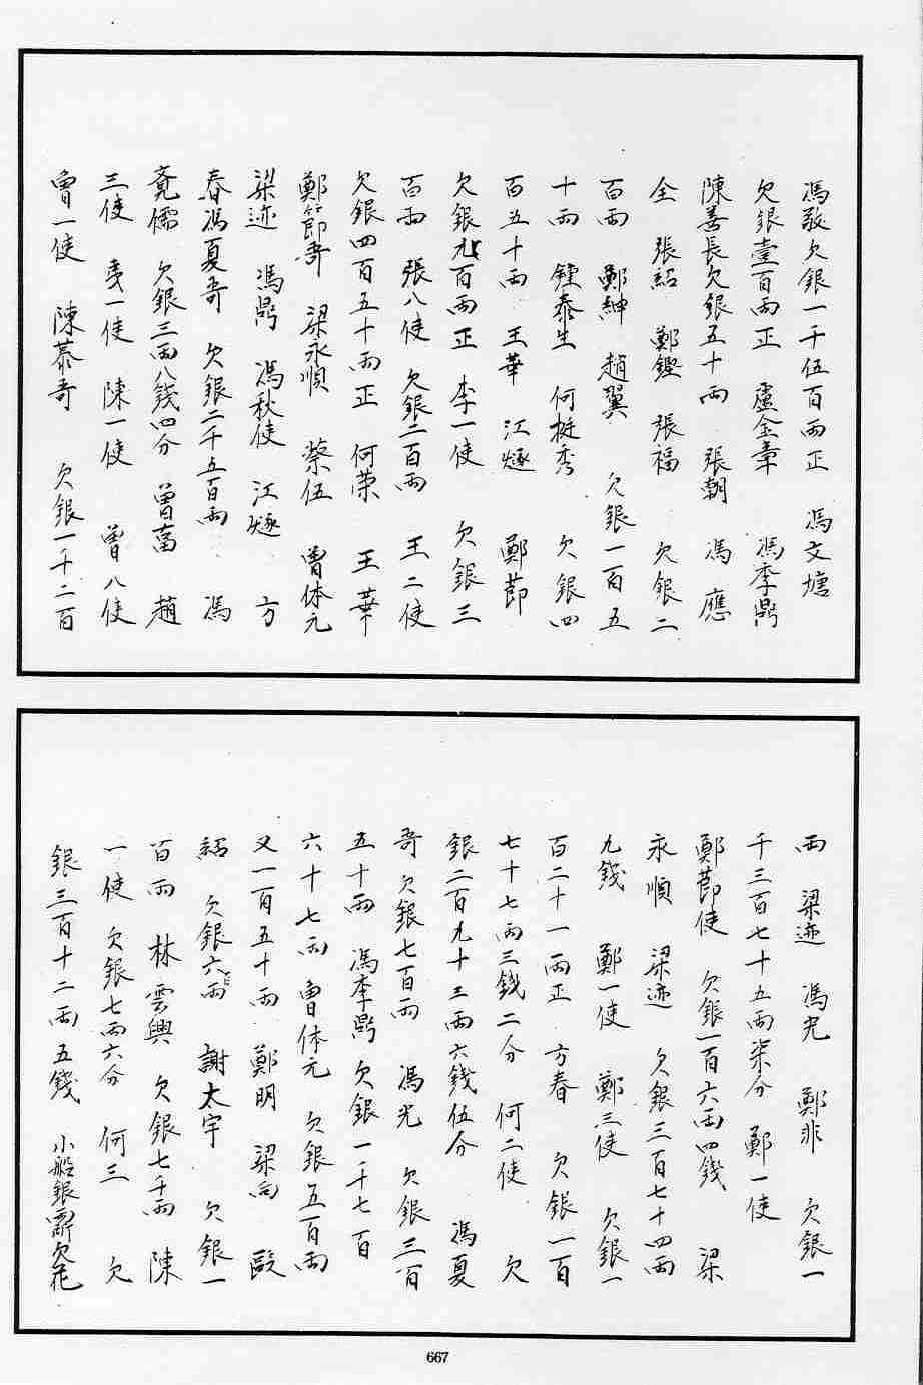 馮敬欠銀一千伍百兩正 馮文塘
欠銀壹百兩正 盧金章 馮季鼎
陳善長欠銀五十兩 張朝 馮應
全 張紹 鄭鏗 張福 欠銀二
百兩 鄭紳 趙翼 欠銀一百五
十兩 鍾泰生 何挺秀 欠銀四
百五十兩 王華 江燧 鄭節
欠銀九百兩正 李一使 欠銀三
百兩 張八使 欠銀二百兩 王二使
欠銀四百五十兩正 何荣 王華
鄭節哥 梁永順 蔡伍 曾体元
梁迹 馮鼎 馮秋使 江燧 方
春馮夏哥 欠銀二千五百兩 馮
堯儒 欠銀三兩八錢四分 曾富 趙
三使 一使 陳一使 曾八使
曾一使 陳慕哥 欠銀一千二百
兩 梁迹 馮光 鄭非 欠銀一
千三百七十五兩柒分 鄭一使
鄭節使 欠銀一百六兩四錢 梁
永順 梁迹 欠銀三百七十四兩
九錢 鄭一使 鄭三使 欠銀一
百二十一兩正 方春 欠銀一百
七十七兩三錢二分 何二使 欠
銀二百九十三兩六錢伍分 馮夏
哥 欠銀七百兩 馮光 欠銀三百
五十兩 馮季鼎 欠銀一千七百
六十七兩 曾体元 欠銀五百兩
又一百五十兩 鄭明 梁向 歐
紹 欠銀六兩 謝太宇 欠銀一
百兩 林雲興 欠銀七千兩 陳
一使 欠銀七兩六分 何三 欠
銀三百十二兩五錢 小船銀兩所欠花
667